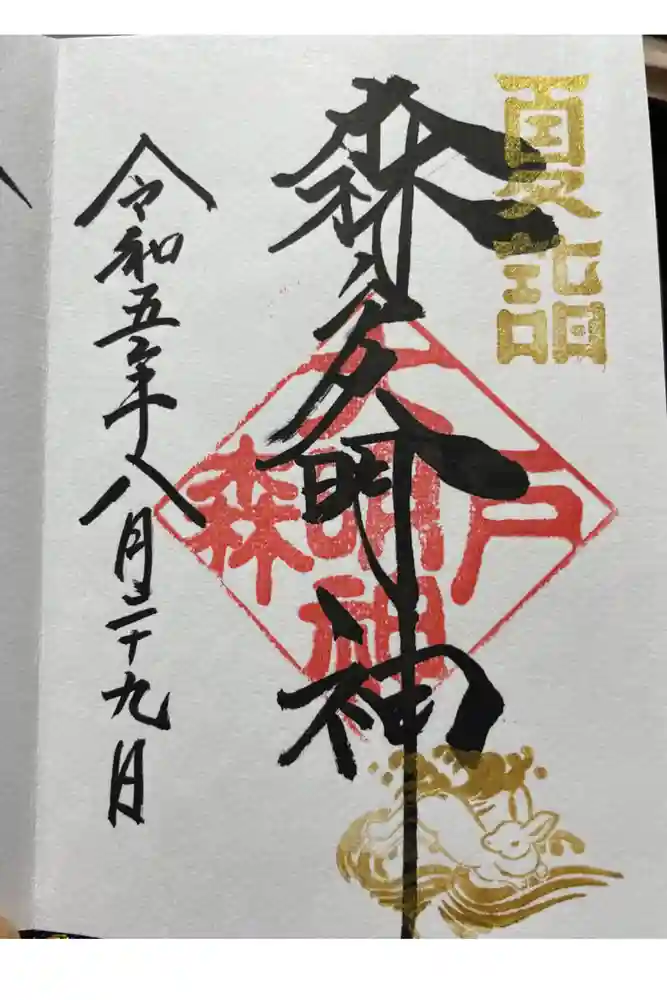 夏詣
森戸大明神
森戸大明神
令和五年八月二十九日